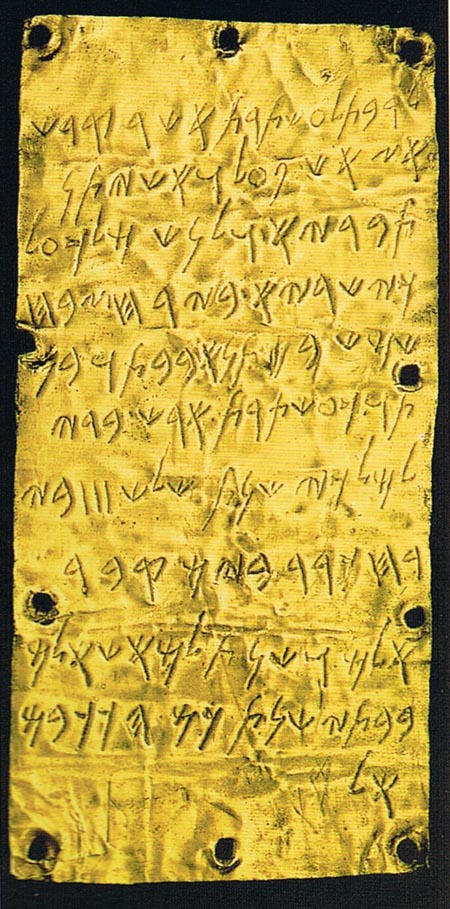 𐤋𐤓𐤁𐤕 𐤋𐤏𐤔𐤕𐤓𐤕 𐤀𐤔𐤓 𐤒𐤃𐤔
𐤀𐤆 𐤀𐤔 𐤐𐤏𐤋 𐤅𐤀𐤔 𐤉𐤕𐤍
𐤕𐤁𐤓𐤉𐤀𐤟 𐤅𐤋𐤍𐤔 𐤌𐤋𐤊 𐤏𐤋
𐤊𐤉𐤔𐤓𐤉𐤀𐤟 𐤁𐤉𐤓𐤇𐤟 𐤆𐤁𐤇
𐤔𐤌𐤔 𐤁𐤌𐤕𐤍 𐤀𐤁𐤁𐤕 𐤅𐤁𐤍
𐤕𐤅𐤟 𐤊𐤏𐤔𐤕𐤓𐤕𐤟 𐤀𐤓𐤔𐤟 𐤁𐤃𐤉
𐤋𐤌𐤋𐤊𐤉 𐤔𐤍𐤕 𐤔𐤋𐤔 𐤛 𐤁𐤉
𐤓𐤇 𐤊𐤓𐤓 𐤁𐤉𐤌 𐤒𐤁𐤓
𐤀𐤋𐤌 𐤅𐤔𐤍𐤕 𐤋𐤌𐤀𐤔 𐤀𐤋𐤌
𐤁𐤁𐤕𐤉 𐤔𐤍𐤕 𐤊𐤌 𐤄𐤊𐤊𐤁𐤌
𐤀𐤋